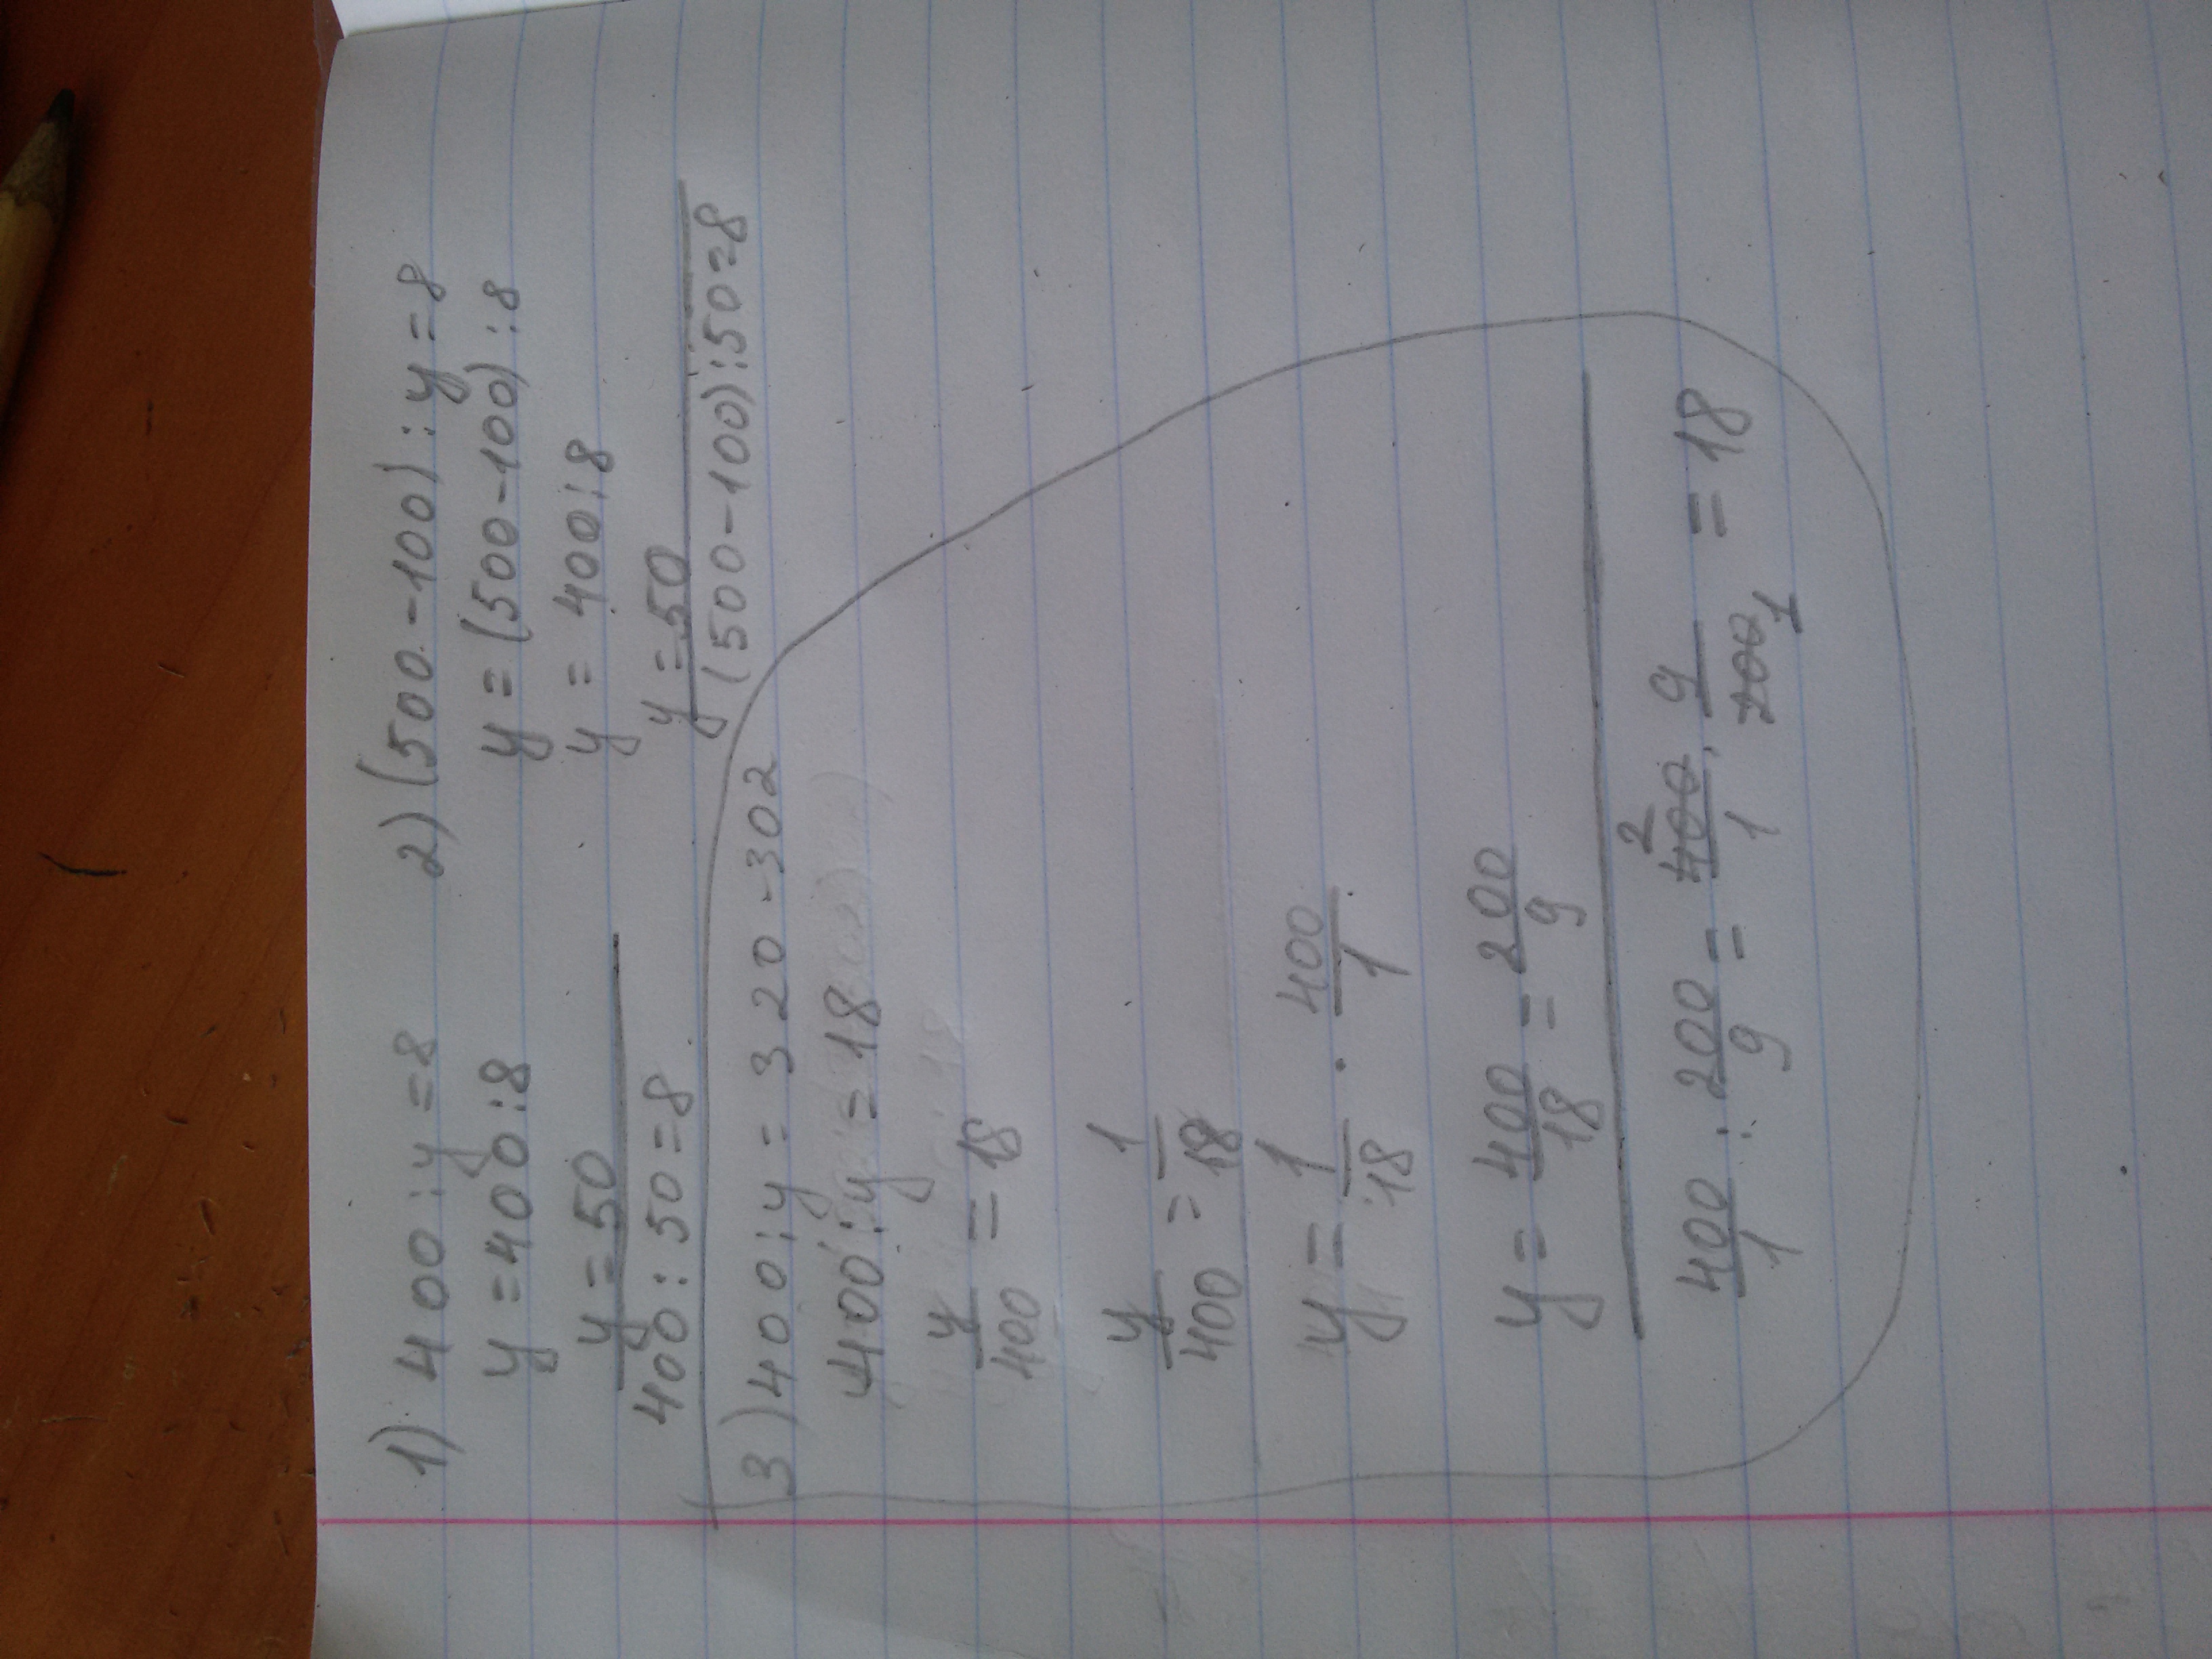 1) 400 : y = 8
y = 400 : 8
y = 50
400 : 50 = 8
2) (500 - 100) : y = 8
y = (500 - 100) : 8
y = 400 : 8
y = 50
(500 - 100) : 50 = 8
3) 400 : y = 320 - 302
400 : y = 18
y/400 = 18
y/400 = 1/18
y = 1/18 · 400/1
y = 400/18 = 200/9
400/1 : 200/9 = 400 2/1 · 9/200 1 = 18